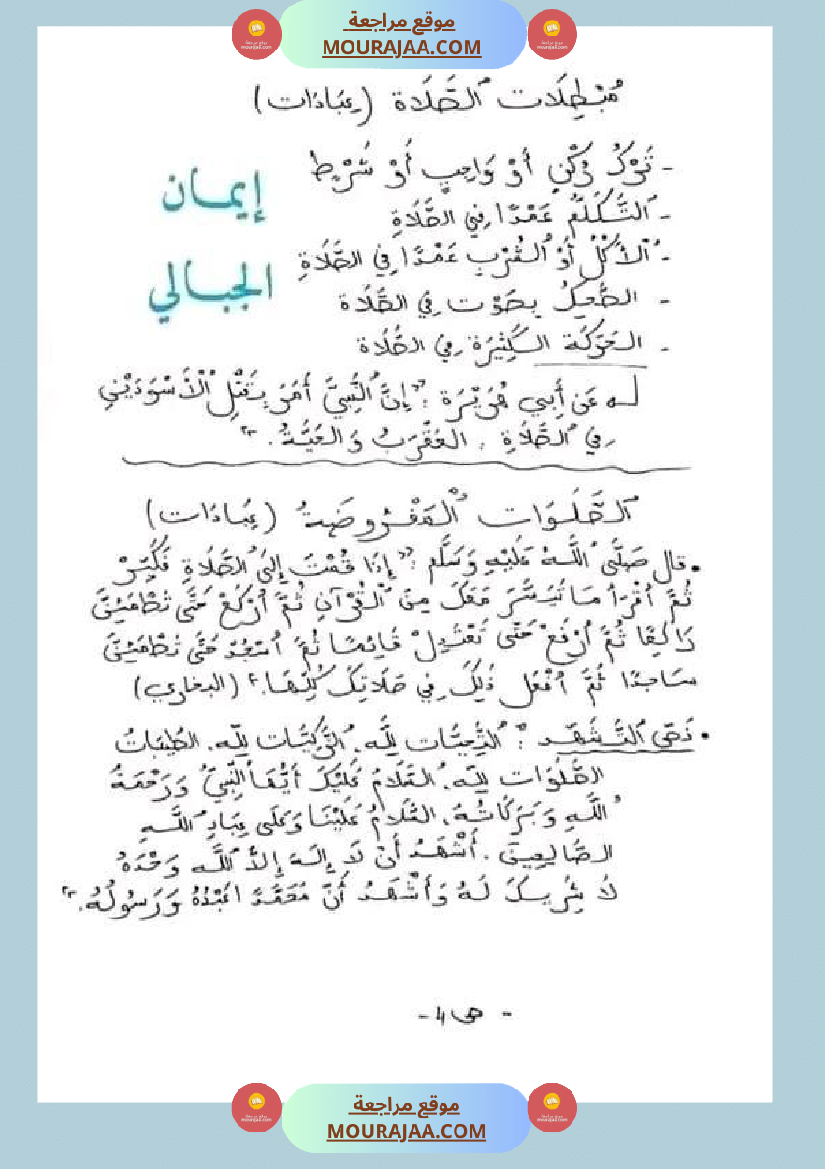 موقع مراجعة
MOURAJAA.COM
مُبْطِلَات الصَّلَاة (عِبَادَات)
- تَرْكُ رُكْنٍ أَوْ وَاجِبٍ أَوْ شَرْطٍ
- التَّكَلُّمُ عَمْدًا فِي الصَّلَاةِ
- الْأَكْلُ أَوْ الشُّرْبِ عَمْدًا فِي الصَّلَاةِ
- الضَّحِكُ بِصَوْت فِي الصَّلَاة
- الحَرَكَة الكَثِيرَة فِي الصَّلَاة
إيمان
الجبالي
عَن أَبِي هُرَيْرَة : "إِنَّ النَّبِيَّ أَمَرَ بِقَتْلِ الْأَسْوَدَيْنِ
فِي الصَّلَاةِ : العَقْرَبُ وَالحَيَّةُ."
الصَّلَوَات الْمَفْرُوضَةُ (عِبَادَات)
• قال صَلَّى اللَّهُ عَلَيْهِ وَسَلَّم : "إِذَا قُمْتَ إِلَى الصَّلَاةِ فَكَبِّرْ
ثُمَّ اقْرَأ مَا تَيَسَّرَ مَعَكَ مِنَ الْقُرْآنِ ثُمَّ ارْكَعْ حَتَّى تَطْمَئِنَّ
رَاكِعًا ثُمَّ ارْفَعْ حَتَّى تَعْتَدِلْ قَائِمًا ثُمَّ اسْجُدْ حَتَّى تَطْمَئِنَّ
سَاجِدًا ثُمَّ افْعَل ذَلِكَ فِي صَلَاتِكَ كُلِّهَا." (البخاري)
• نَصّ التَّشَهُّد : "التَّحِيَّات لِلَّه. الزَّكِيَّات لِلَّه. الطَّيِّبَاتُ
الصَّلَوَات لِلَّه. السَّلَامُ عَلَيْكَ أَيُّهَا النَّبِيُّ وَرَحْمَةُ
اللَّهِ وَبَرَكَاتُهُ. السَّلَامُ عَلَيْنَا وَعَلَى عِبَادِ اللَّهِ
الصَّالِحِينَ. أَشْهَدُ أَنْ لَا إِلَهَ إِلاَّ اللَّه وَحْدَهُ
لَا شَرِيكَ لَهُ وَأَشْهَدُ أَنَّ مُحَمَّدًا عَبْدُهُ وَرَسُولُهُ."
- ص4 -
موقع مراجعة
MOURAJAA.COM